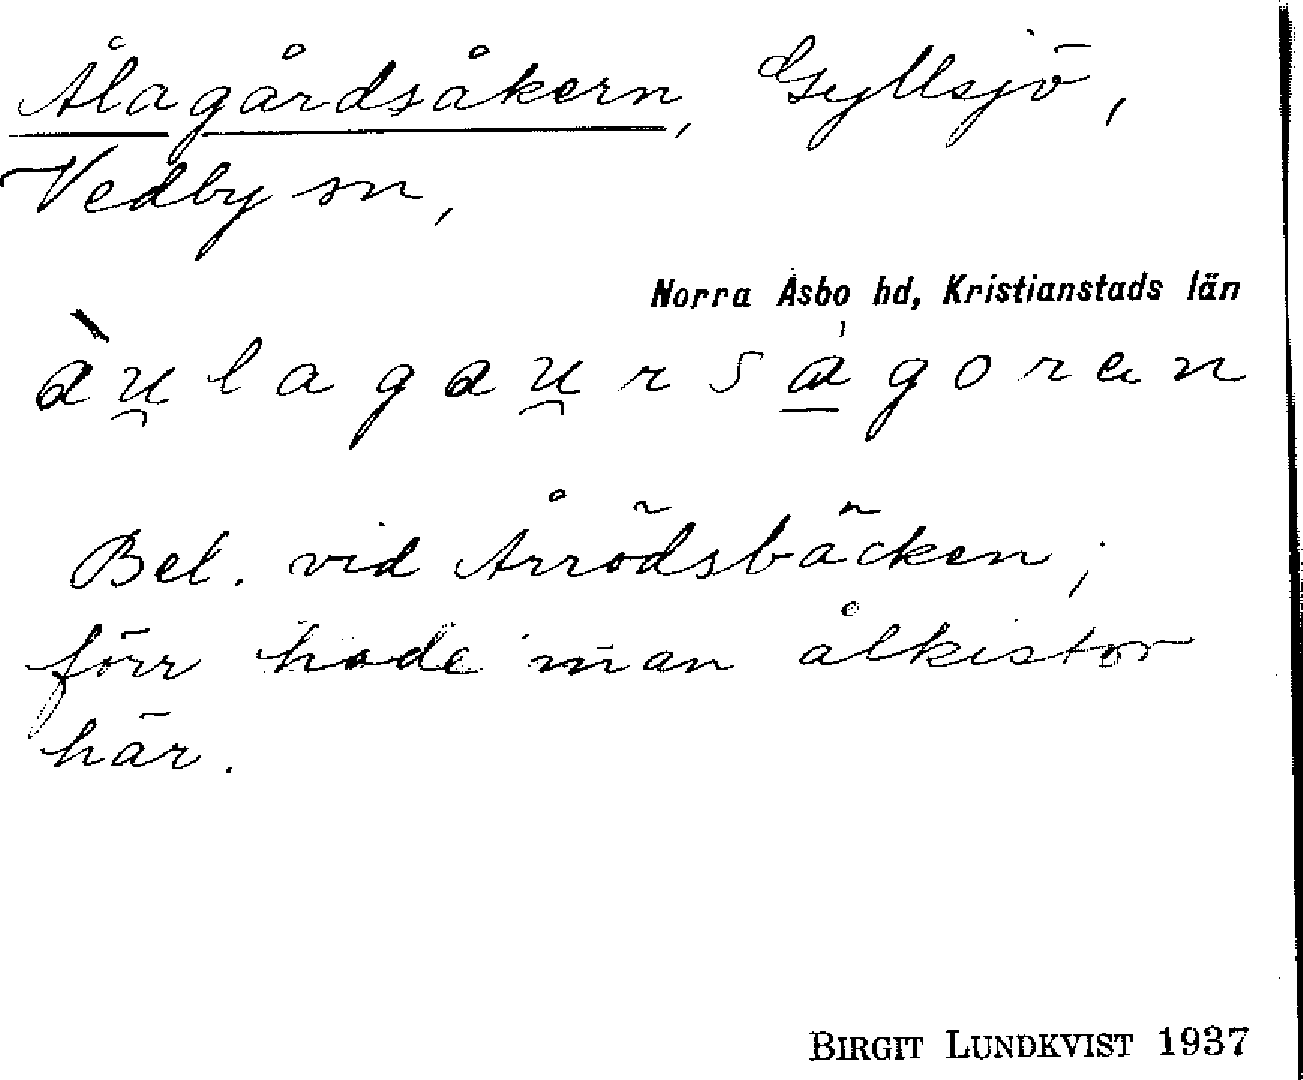 Ålagårdsåkern, Gyllsjö,
Vedby sn,
Norra Åsbo hd, Kristianstads län
àu̯lagau̯rsa̠goran
Bel. vid Årrödsbäcken;
förr hade man ålkistor
här.
BIRGIT LUNDKVIST 1937